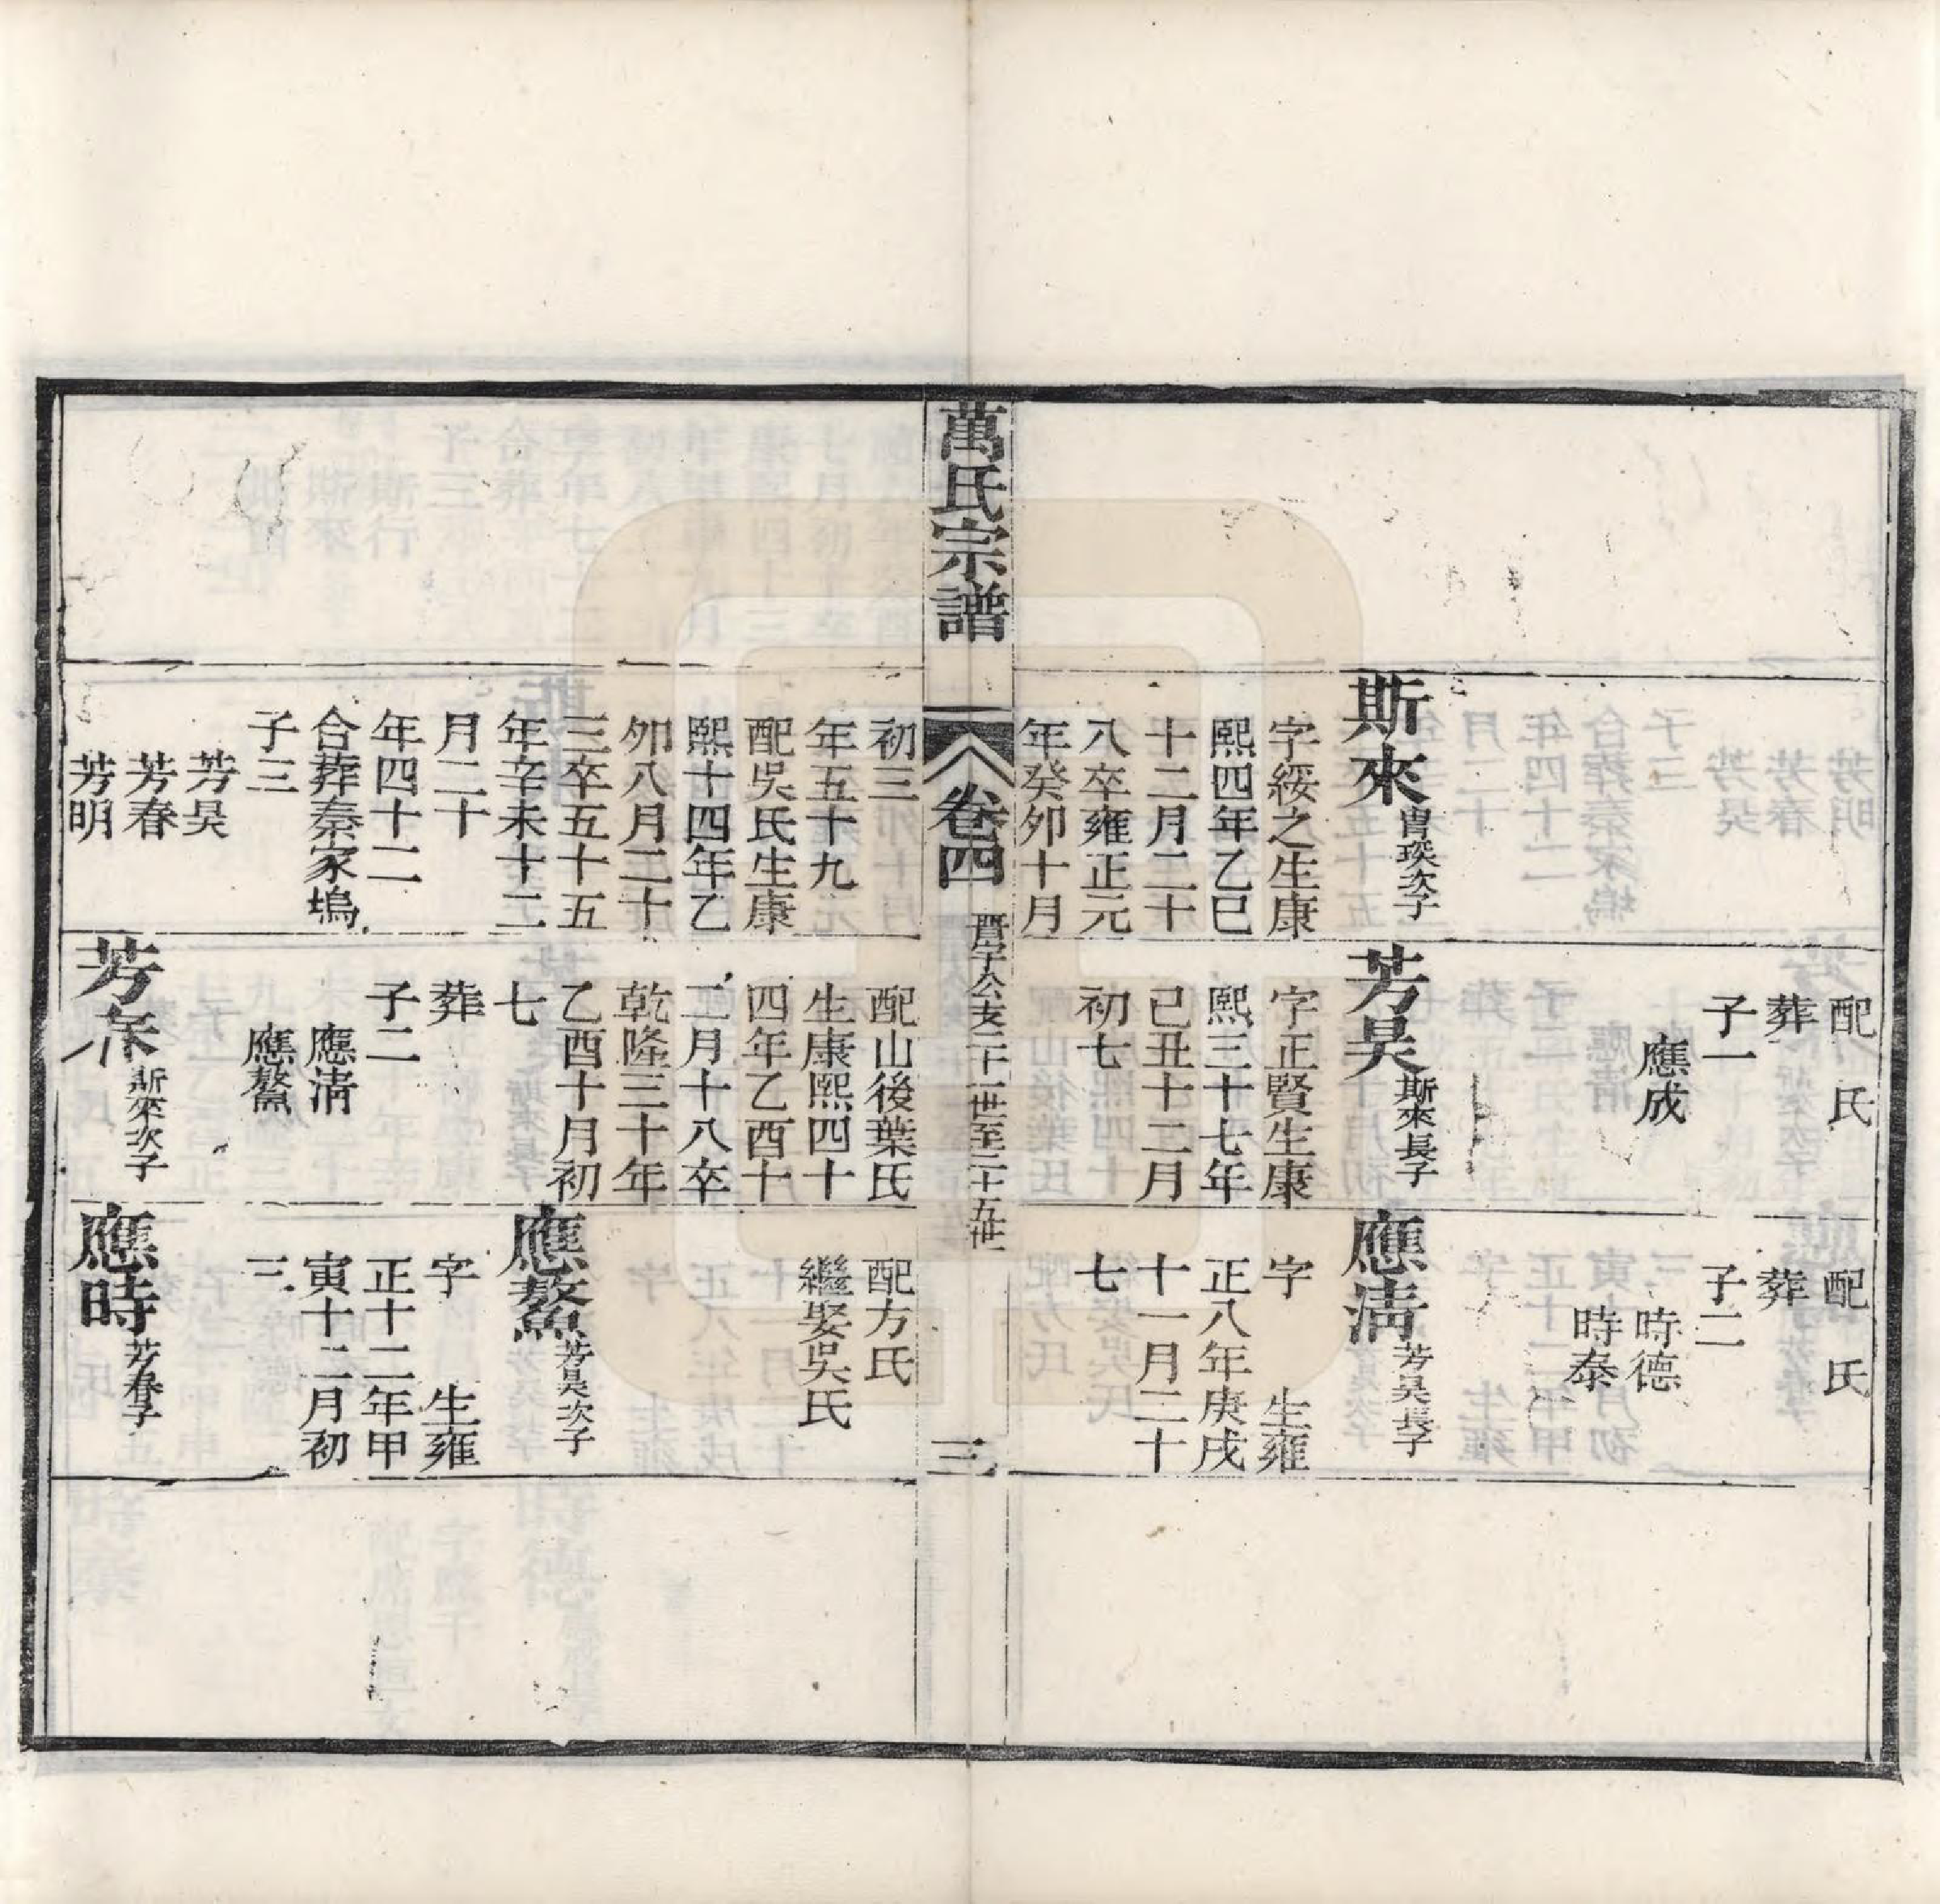 斯來
曾琰次子
字綏之生康
熙四年乙巳
十二月二十
八卒雍正元
年癸卯十月
配 氏
葬
子一
應成
芳昊
斯來長子
字正賢生康
熙三十七年
己丑十二月
初七
配 氏
葬
子二
時德
時泰
應清
芳昊長子
字 生雍
正八年庚戌
十一月二十
七
萬氏宗譜
卷四
公支二十一世至二十五世
三
初三
年五十九
配吳氏生康
熙十四年乙
卯八月二十
三卒五十五
年辛未十二
月二十
年四十二
合葬秦家塢
子三
芳昊
芳春
芳明
配山後葉氏
生康熙四十
四年乙酉十
二月十八卒
乾隆三十年
乙酉十月初
七
葬
子二
應清
應鰲
芳春
斯來次子
配方氏
繼娶吳氏
應鰲
芳昊次子
字 生雍
正十二年甲
寅十二月初
三
應時
芳春子